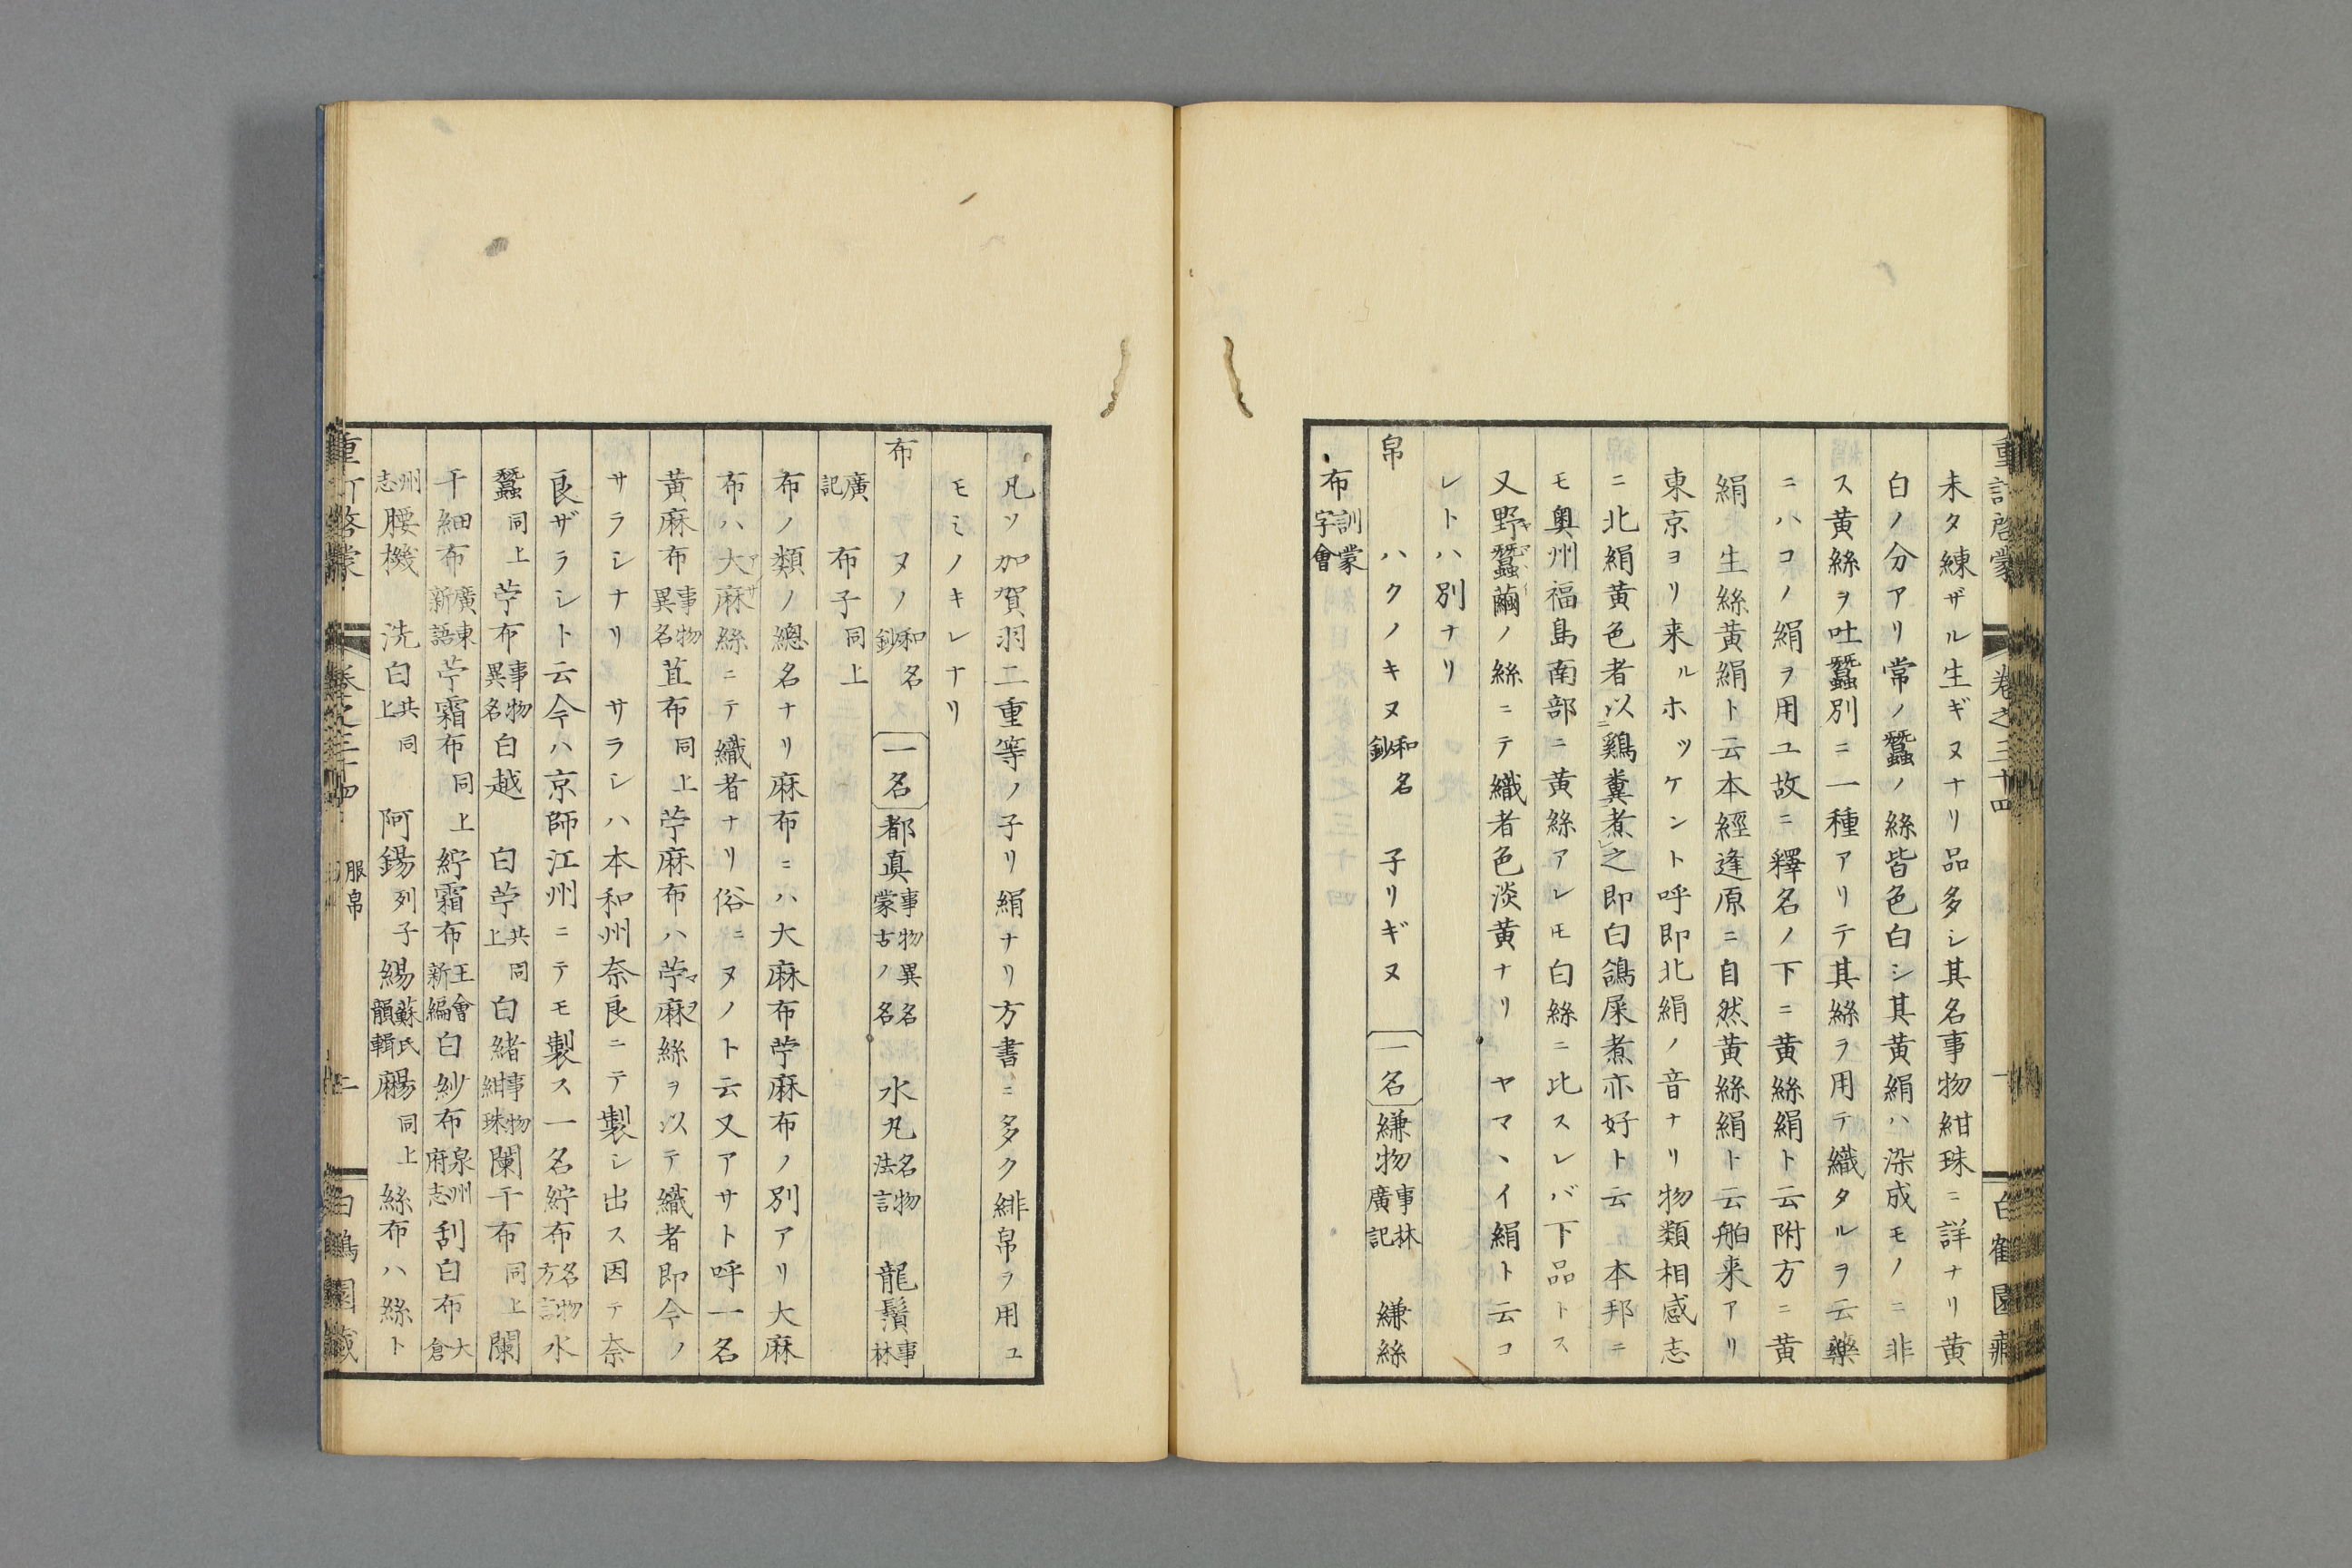 重訂啓蒙 卷之三十四 一 白鶴園藏
未タ練ザル生ギヌナリ品多シ其名事物紺珠ニ詳ナリ黄
白ノ分アリ常ノ蠶ノ絲皆色白シ其黄絹ハ染成モノニ非
ス黄絲ヲ吐蠶別ニ一種アリテ其絲ヲ用テ織タルヲ云藥
ニハコノ絹ヲ用ユ故ニ釋名ノ下ニ黄絲絹ト云附方ニ黄
絹 生絲黄絹ト云本經逢原ニ自然黄絲絹ト云舶来アリ
東京ヨリ来ルホツケント呼即北絹ノ音ナリ物類相感志
ニ北絹黄色者以鷄糞煮之即白鴿屎煮亦好ト云 本邦ニ
モ奥州福島南部ニ黄絲アレモ白絲ニ比スレバ下品トス
又野蠶繭ノ絲ニテ織者色淡黄ナリ ヤマヽイ絹ト云コ
レトハ別ナリ
帛 ハクノキヌ和名鈔 子リギヌ 一名 縑物事林廣記 縑絲
布訓蒙字會
凡ソ加賀羽二重等ノ子リ絹ナリ方書ニ多ク緋帛ヲ用ユ
モミノキレナリ
布 ヌノ和名鈔 一名 都眞事物異名蒙古ノ名 水凡名物法言 龍鬚事林
廣記 布子同上
布ノ類ノ總名ナリ麻布ニハ大麻布苧麻布ノ別アリ大麻
布ハ大麻絲ニテ織者ナリ俗ニヌノト云又アサト呼一名
黄麻布事物異名 苴布同上 苧麻布ハ苧麻絲ヲ以テ織者即今ノ
サラシナリ サラシハ本和州奈良ニテ製シ出ス因テ奈
良ザラシト云今ハ京師江州ニテモ製ス一名紵布名物方言 水
蠶同上 苧布事物異名 白越 白苧共同上 白緒事物紺珠 闌干布同上 闌
干細布廣東新語 苧霜布同上 紵霜布王會新編 白紗布泉州府志 刮白布大倉
州志 腰機 洗白共同上 阿錫列子 緆蘇氏韻輯 𪎭同上 絲布ハ絲ト
重訂啓蒙 卷之三十四 服帛 二 白鶴園藏